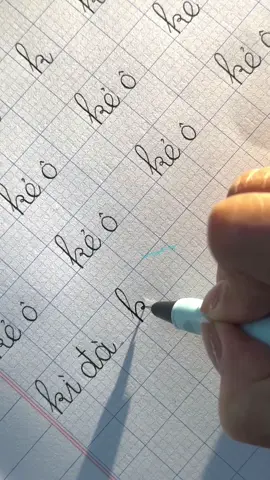 k k
kẻ ô kẻ ô kẻ
kẻ ô kẻ ô kẻ ô kẻ ô
kì đà k